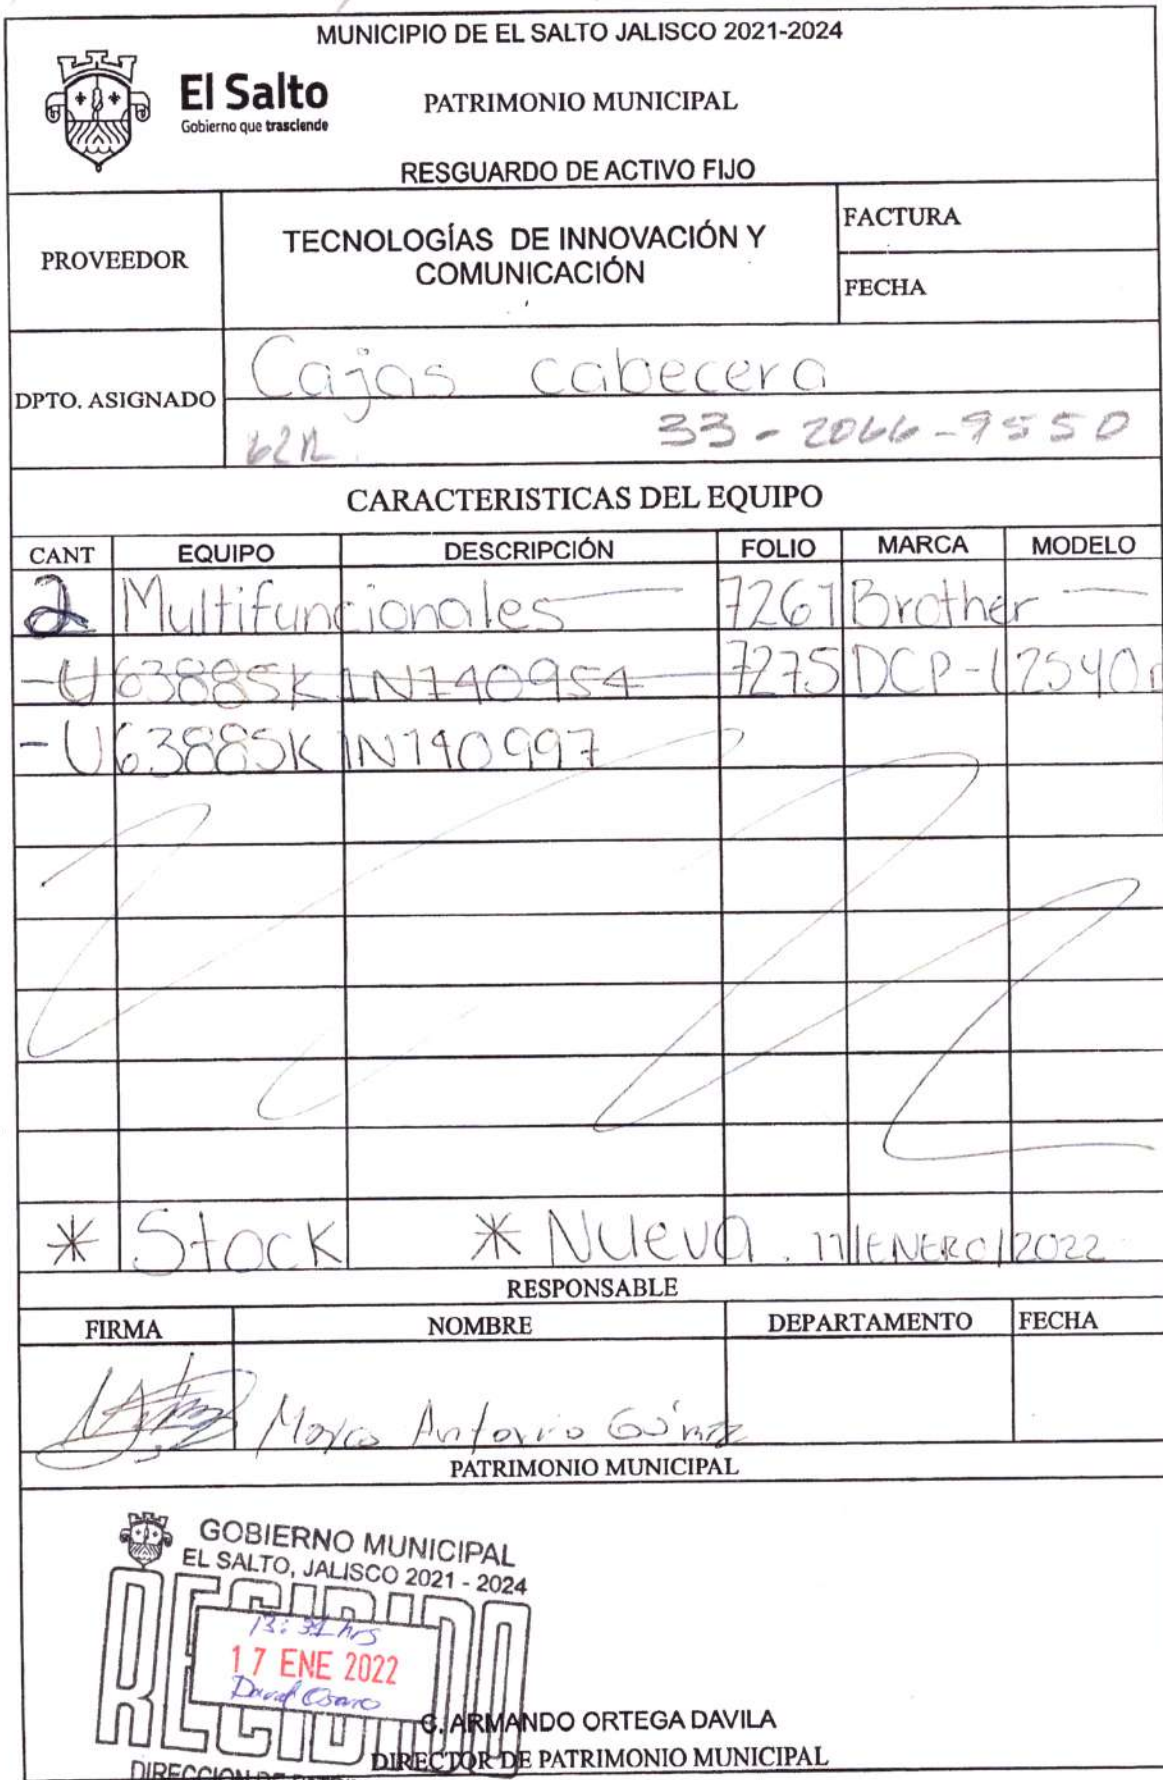 MUNICIPIO DE EL SALTO JALISCO 2021-2024
El Salto
Gobierno que trasciende
PATRIMONIO MUNICIPAL
RESGUARDO DE ACTIVO FIJO
PROVEEDOR
TECNOLOGÍAS DE INNOVACIÓN Y
COMUNICACIÓN
FACTURA
FECHA
DPTO. ASIGNADO
Cajas cabecera
33-2066-9550
CARACTERISTICAS DEL EQUIPO
CANT EQUIPO DESCRIPCIÓN FOLIO MARCA MODELO
2 Multifuncionales 7261 Brother
-U63885K1N740954 7275 DCP-L2540
-U63885K1N740997
* Stock * Nueva. 17/ENERO/2022
RESPONSABLE
FIRMA NOMBRE DEPARTAMENTO FECHA
Marco Antonio Gómez
PATRIMONIO MUNICIPAL
GOBIERNO MUNICIPAL
EL SALTO, JALISCO 2021 - 2024
RECIBIDO
13:31 hrs
17 ENE 2022
David
C. ARMANDO ORTEGA DAVILA
DIRECTOR DE PATRIMONIO MUNICIPAL
DIRECCION DE